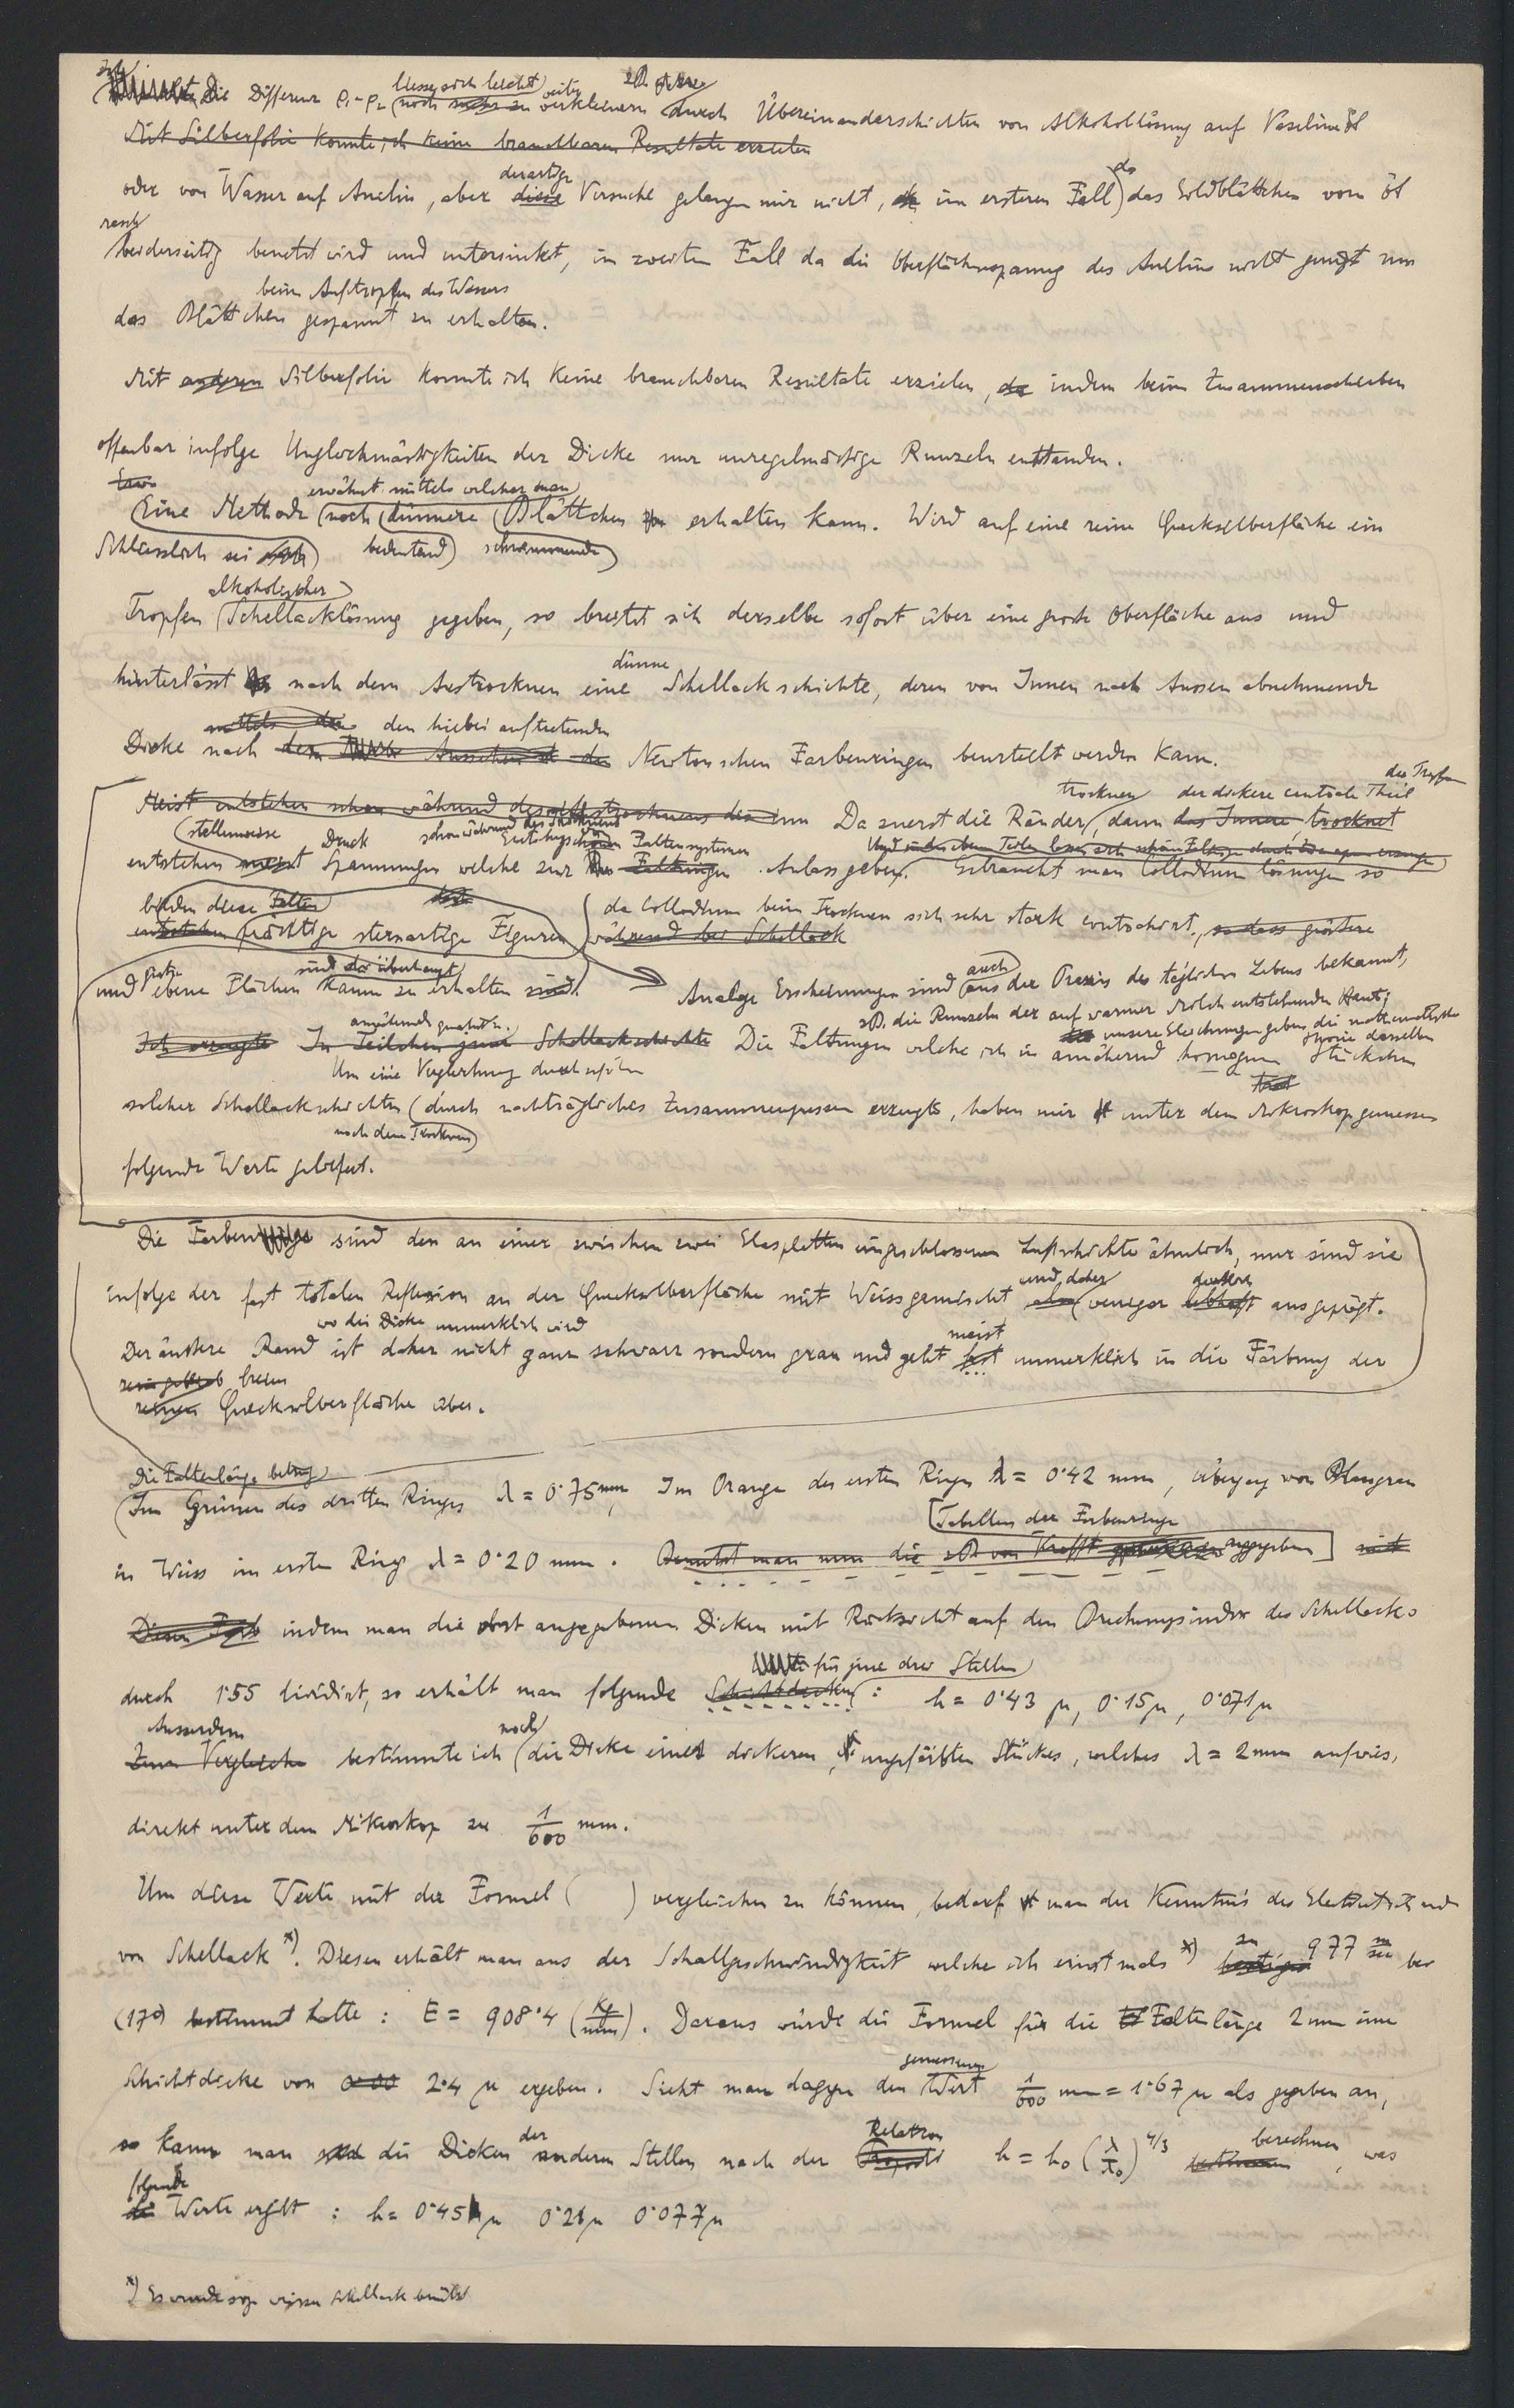 Die Differenz ρ₁-ρ₂ liesse sich leicht noch weiter verkleinern durch Übereinanderschichten von Alkohollösung auf Vaselinöl
Mit Silberfolie konnte ich keine brauchbaren Resultate erzielen
oder von Wasser auf Anilin, aber derartige Versuche gelangen mir nicht, im ersteren Fall da das Goldblättchen vom Öl
rasch beiderseitig benetzt wird und untersinkt, im zweiten Fall da die Oberflächenspannung des Anilins nicht genügt um
beim Auftropfen des Wassers
das Blättchen gespannt zu erhalten.
Mit anderen Silberfolie konnte ich keine brauchbaren Resultate erzielen, da indem beim Zusammenschieben
offenbar infolge Ungleichmässigkeiten der Dicke nur unregelmässige Runzeln entstanden.
erwähnt mittels welcher man
Eine Methode noch dünnere Blättchen erhalten kann. Wird auf eine reine Quecksilberfläche ein
Schliesslich sei noch bedeutend schwimmende
alkoholischer
Tropfen Schellacklösung gegeben, so breitet sich derselbe sofort über eine grosse Oberfläche aus und
dünne
hinterlässt nach dem Austrocknen eine Schellackschichte, deren von Innen nach Aussen abnehmende
mittels der den hiebei auftretenden
Dicke nach dem Aussehen der Newtonschen Farbenringen beurteilt werden kann.
trocknen der dickere centrale Theil des Tropfens
Meist entstehen schon während des Da zuerst die Ränder, dann das Innere, trocknet
stellenweise Druck schon während des Trocknens Entstehung von Faltensystemen
entstehen meist Spannungen welche zur Faltungen Anlass geben. Gebraucht man Collodiumlösungen so
bilden diese Falten
entstehen prächtige sternartige Figuren da Collodium beim Trocknen sich sehr stark contrahirt, so dass grössere
während bei Schellack
und ganz ebene Flächen sind da überhaupt kaum zu erhalten sind. Analoge Erscheinungen sind auch aus der Praxis des täglichen Lebens bekannt,
z.B. die Runzeln der auf warmer Milch entstehenden Haut;
unsere Gleichungen geben die mathematische Theorie derselben
Ich erzeugte In Teilchen Schellackschichte Die Faltungen welche ich in annähernd homogenen Stückchen
Um eine Vergleichung durchzuführen
solcher Schellackschichten durch nachträgliches Zusammenpressen erzeugte, haben mir unter dem Mikroskop gemessen
nach dem Trocknen
folgende Werte geliefert.
Die Farben sind den an einer zwischen zwei Glasplatten eingeschlossenen Luftschichte ähnlich, nur sind sie
infolge der fast totalen Reflexion an der Quecksilberfläche mit Weiss gemischt und daher weniger deutlich ausgeprägt.
wo die Dicke unmerklich wird
Der äussere Rand ist daher nicht ganz schwarz sondern grau und geht meist fast unmerklich in die Färbung der
freien
reinen Quecksilberfläche über.
Die Faltenlänge betrug
Im Grünen des dritten Ringes λ = 0·75 mm, Im Orange des ersten Ringes λ = 0·42 mm, Übergang von Blaugrau
Tabellen der Farbenringe
in Weiss im ersten Ring λ = 0·20 mm. Benutzt man nun die z.B. von Krafft angegeben
indem man die dort angegebenen Dicken mit Rücksicht auf den Brechungsindex des Schellacks
für jene drei Stellen
durch 1·55 dividirt, so erhält man folgende Schichtdicken: h = 0·43 μ, 0·15 μ, 0·071 μ
Ausserdem noch
Zum Vergleiche bestimmte ich die Dicke eines dickeren, ungefärbten Stückes, welches λ = 2 mm aufwies,
direkt unter dem Mikroskop zu 1/600 mm.
Um diese Werte mit der Formel ( ) vergleichen zu können, bedarf man der Kenntnis des Elasticität
von Schellack *). Diesen erhält man aus der Schallgeschwindigkeit welche ich einstmals *) zu 977 m/sec bei
(17°) bestimmt hatte: E = 908·4 (Kg/mm). Daraus würde die Formel für die Faltenlänge 2 mm eine
gemessenen
Schichtdicke von 2·4 μ ergeben. Sieht man dagegen den Wert 1/600 mm = 1·67 μ als gegeben an,
der Relation berechnen
so kann man die Dicken anderen Stellen nach der h = h₀ (λ/λ₀)^4/3 bestimmen, was
folgende
Werte ergibt: h = 0·45 μ 0·21 μ 0·077 μ
*) Es wurde sog. Schellack benützt